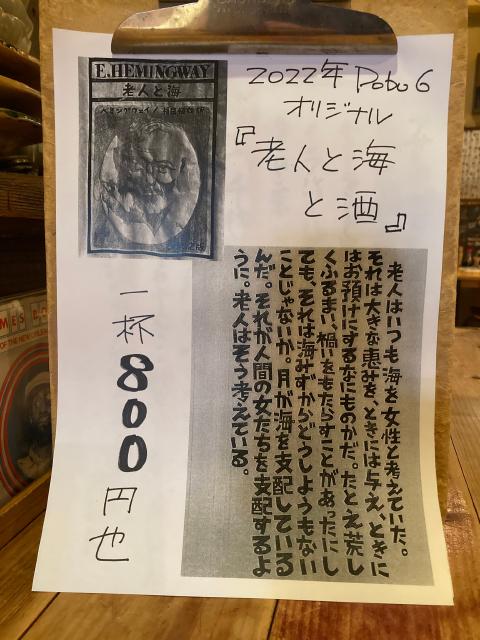 E.HEMINGWAY
老人と海
ヘミングウェイ/
2022年 Dobu6
オリジナル
『老人と海
と酒』
老人はいつも海を女性と考えていた。
それは大きな恵みを、ときには与え、ときに
はお預けにするなにものかだ。たとえ荒し
くふるまい、禍いをもたらすことがあったにし
ても、それは海みずからどうしようもない
ことじゃないか。月が海を支配している
んだ。それが人間の女たちを支配するよ
うに。老人はそう考えている。
一杯800円也